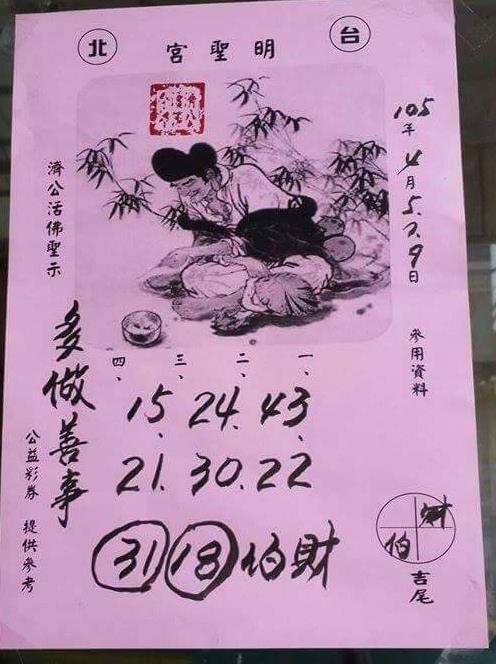 台北
明聖宮
105年4月5.7.9日
參用資料
濟公活佛聖示
一、二、三、四、
43、24、15、
22.30.21
多做善事
公益彩券 提供參考
31 18 伯財
財
伯
吉尾